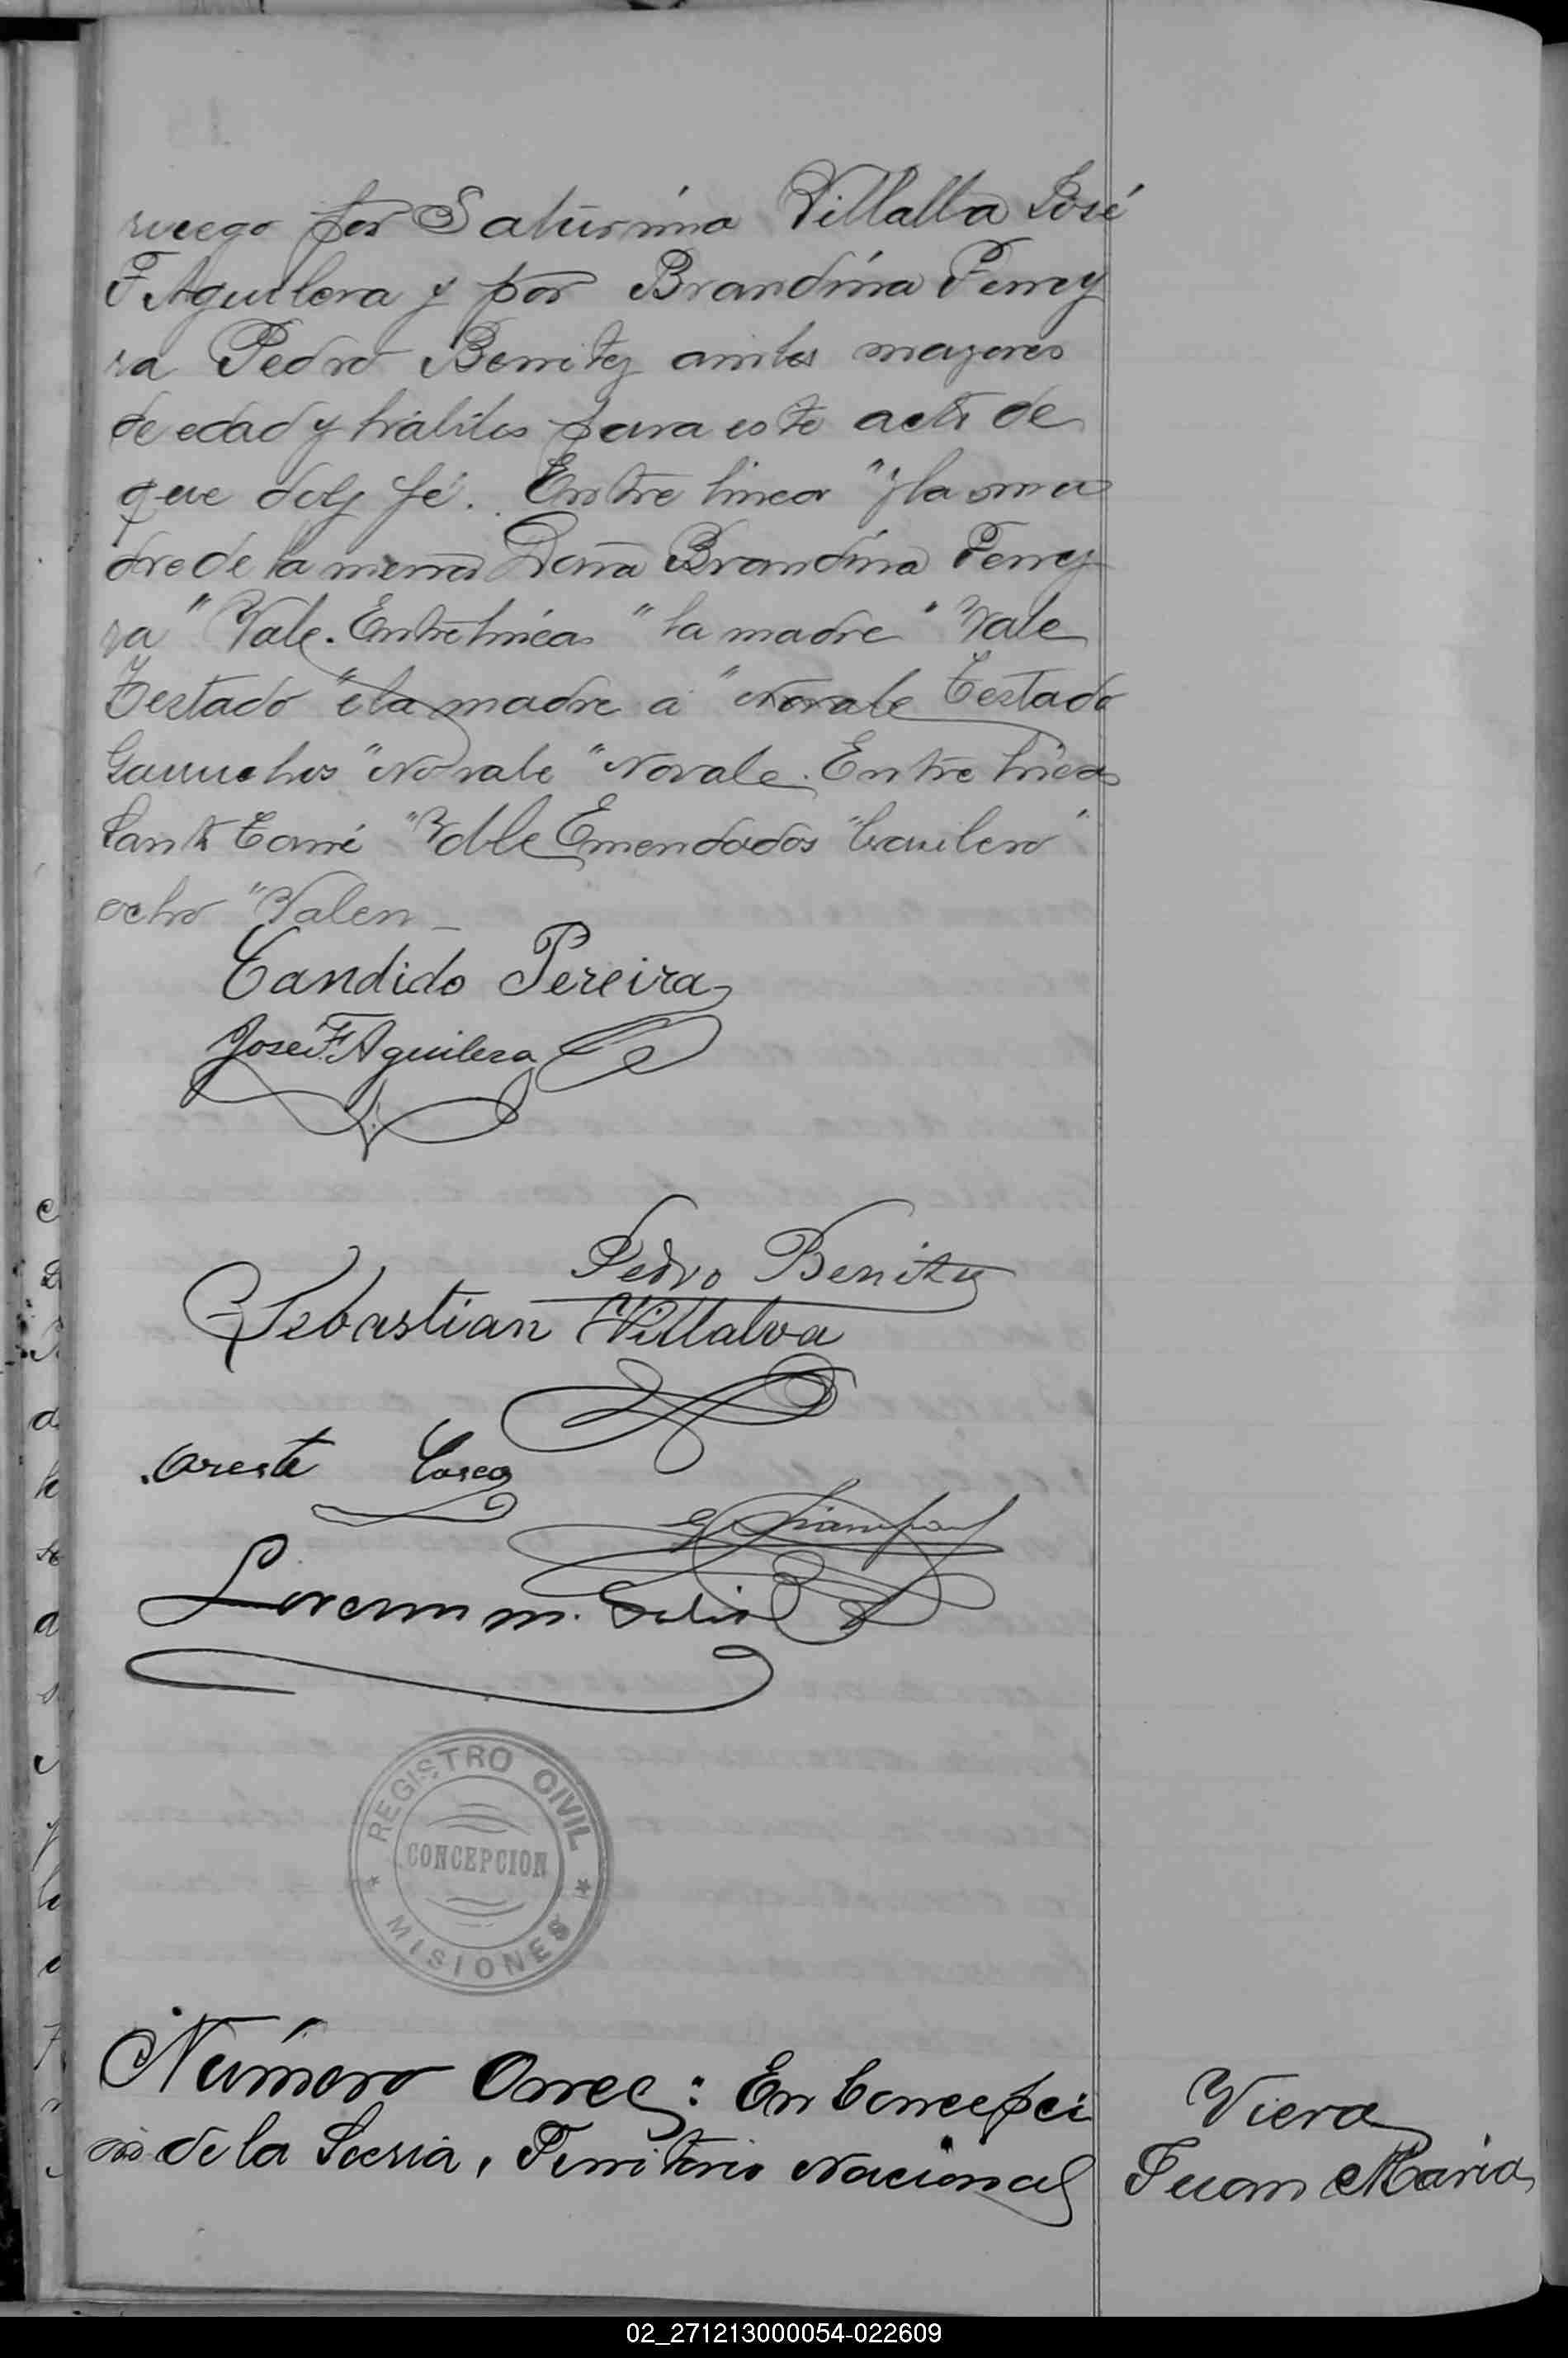 ruego por Saturnina Villalba José
F Aguilera y por Brandina Ferrey
ra Pedro Benitez ambos mayores
de edad y hábiles para este acto de
que doy fé. Entre linea "y la ma
dre de la menor Doña Brandina Ferrey
ra" Vale. Entre lineas "la madre" Vale
Testado "é la madre a" No vale Testado
Garruchos "No vale" No vale. Entre lineas
Santo Tomé "Vale Emendados "brasilero"
ocho "Valen
Candido Pereira
José F Aguilera
Pedro Benitez
Sebastian Villalva
Oreste
Lorenzo M.
REGISTRO CIVIL
CONCEPCION
MISIONES
Número Once: En Concepci
ón de la Sierra, Territorio Nacional
Viera
Juan Maria
02_271213000054-022609